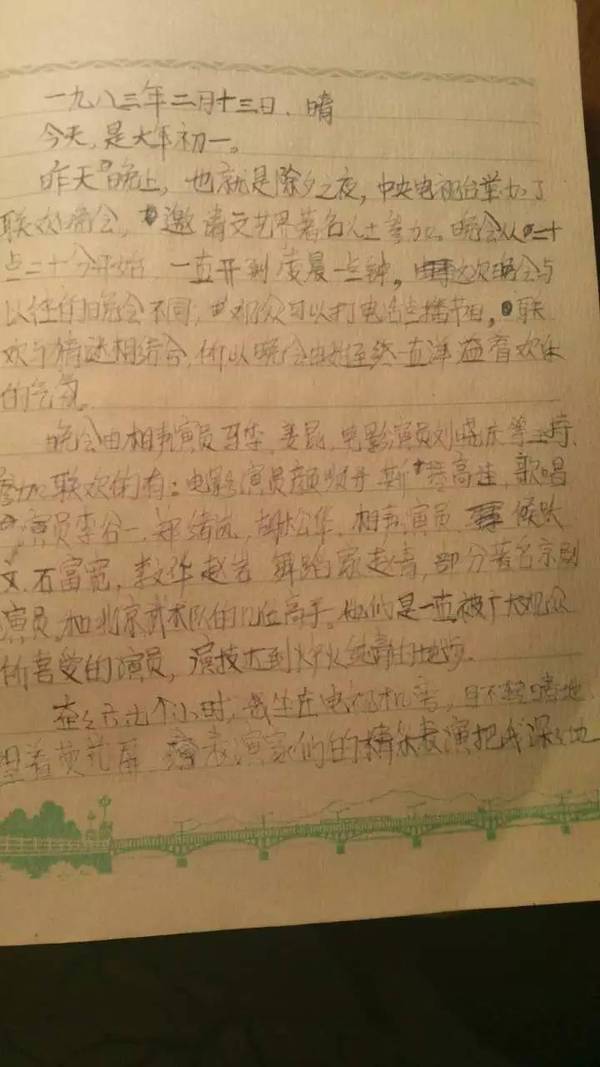 一九八三年二月十三日.晴
今天,是大年初一。
昨天晚上,也就是除夕之夜,中央电视台举办了
联欢晚会,邀请文艺界著名人士参加。晚会从二十
点二十分开始 一直开到凌晨一点钟。这次晚会与
以往的晚会不同,观众可以打电话点播节目,联
欢与猜谜相结合,所以晚会始终一直洋溢着欢乐
的气氛。
晚会由相声演员马季,姜昆,电影演员刘晓庆等主持.
参加联欢的有:电影演员 斯琴高娃,歌唱
演员李谷一,郑绪岚,胡松华,相声演员 侯跃
文,石富宽,李文华赵炎 舞蹈家赵青,部分著名京剧
演员,和北京武术队的几位高手。他们是一直被广大观众
所喜爱的演员,演技达到炉火纯青的地步.
在这六个小时,我坐在电视机旁,目不转睛地
望着荧光屏 表演家们的精采表演把我深深地